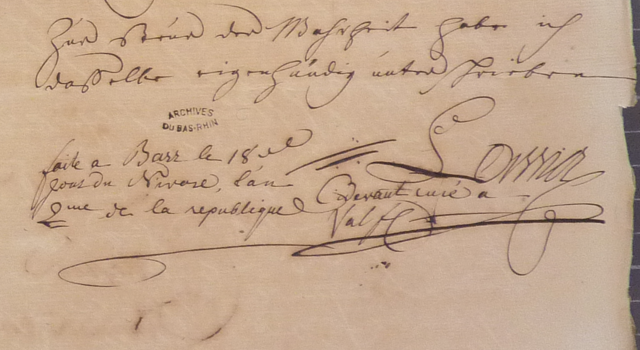 Zur Steur der Wahrheit habe ich
dasselbe eigenhändig unterschrieben
ARCHIVES
DU BAS-RHIN
faite a Barr le 18
jour du Nivose, l'an
2me de la republique
Devant curé a
Valff